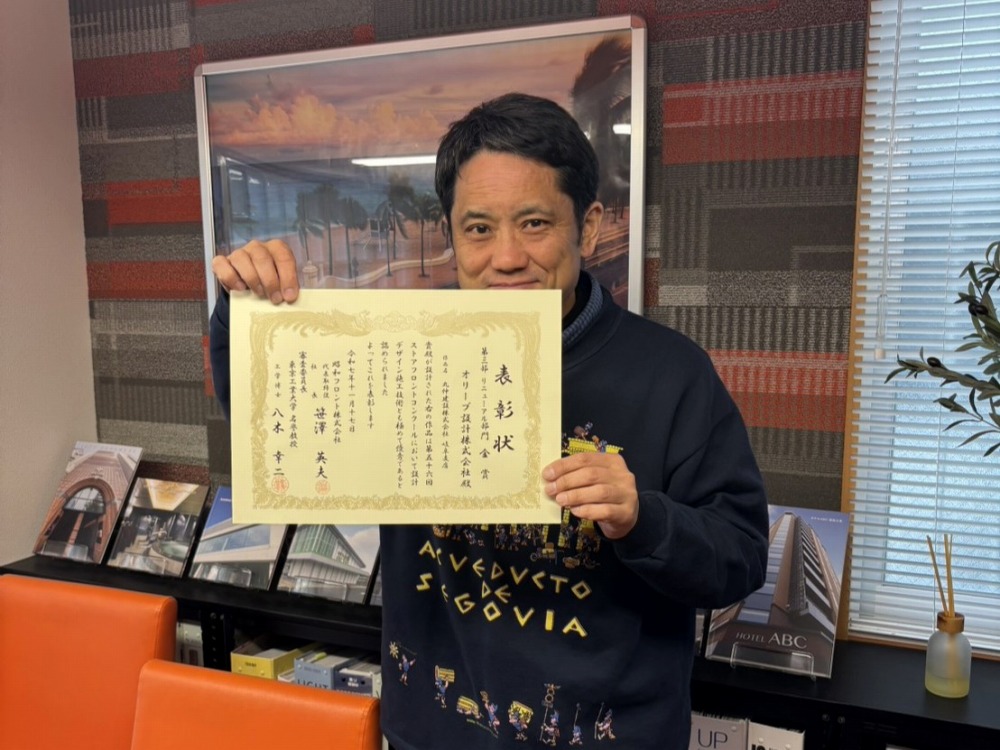 表彰状
第三部 リニューアル部門 金賞
オリーブ設計株式会社殿
作品名 丸仲建設株式会社 岐阜支店
貴殿が設計された右の作品は第五十六回
ストアフロントコンクールにおいて設計
デザイン施工技術とも極めて優秀であると
認められました
よってこれを表彰します
令和七年十一月十七日
昭和フロント株式会社
代表取締役社長 笹澤 英夫
審査委員長
東京工業大学 名誉教授
工学博士 八木 幸二
ACVEDVCTO
DE
SEGOVIA
HOTEL ABC
LIGHT
UP